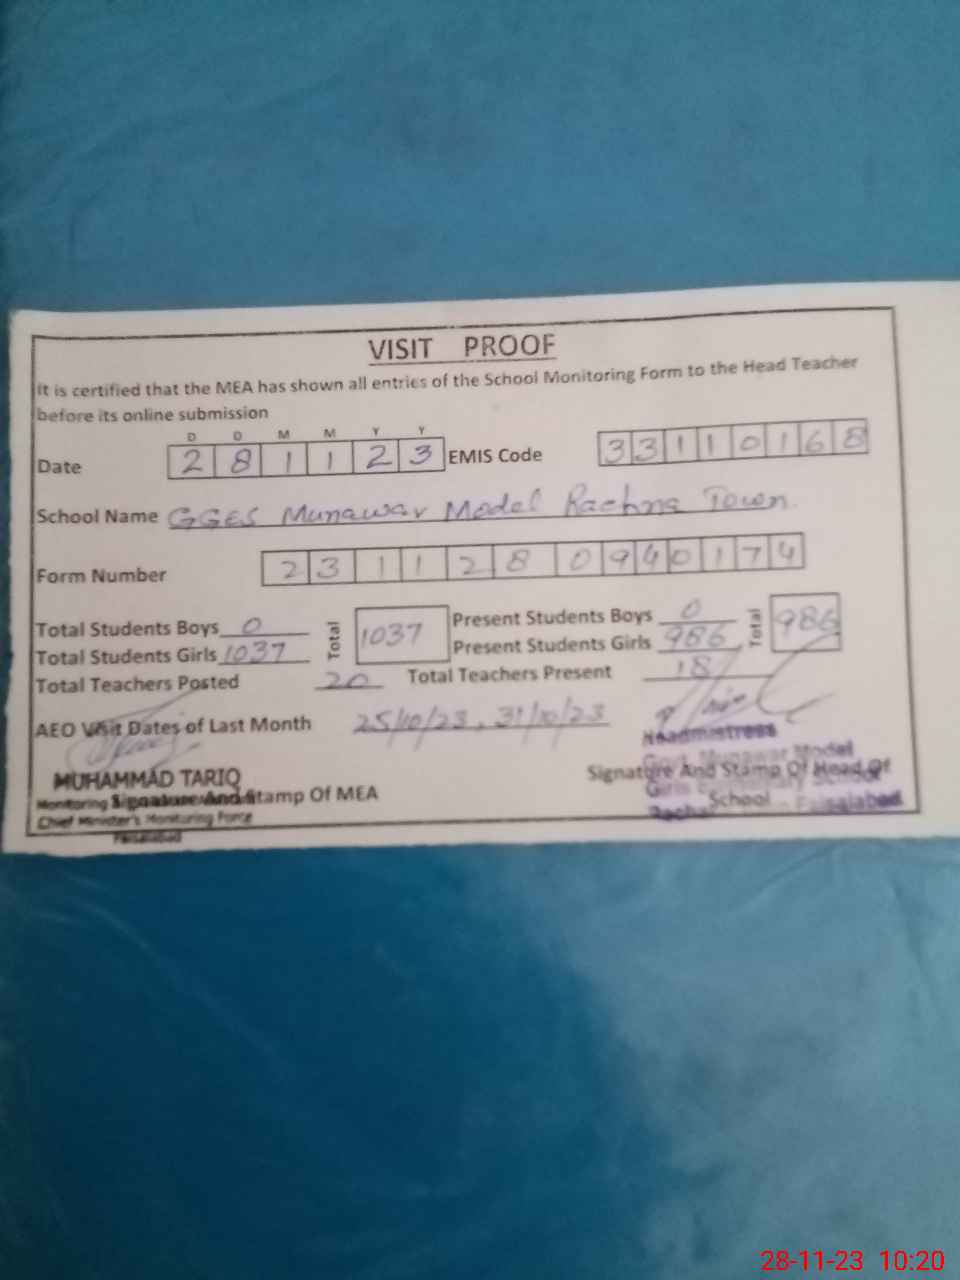 VISIT PROOF
It is certified that the MEA has shown all entries of the School Monitoring Form to the Head Teacher
before its online submission
D D M M Y Y
Date 2 8 1 1 2 3 EMIS Code 3 3 1 1 0 1 6 8
School Name GGES Munawar Model Rachna Town
Form Number 2 3 1 1 2 8 0 9 4 0 1 7 4
Total Students Boys 0 Total 1037 Present Students Boys 0 Total 986
Total Students Girls 1037 Present Students Girls 986
Total Teachers Posted 20 Total Teachers Present 18
AEO Visit Dates of Last Month 25/10/23, 31/10/23
Headmistress
Govt. Munawar Model
MUHAMMAD TARIQ Signature And Stamp Of Head Of
Girls Elementary School
Monitoring Signature And Stamp Of MEA School
Chief Minister's Monitoring Force Faisalabad
Faisalabad
28-11-23 10:20